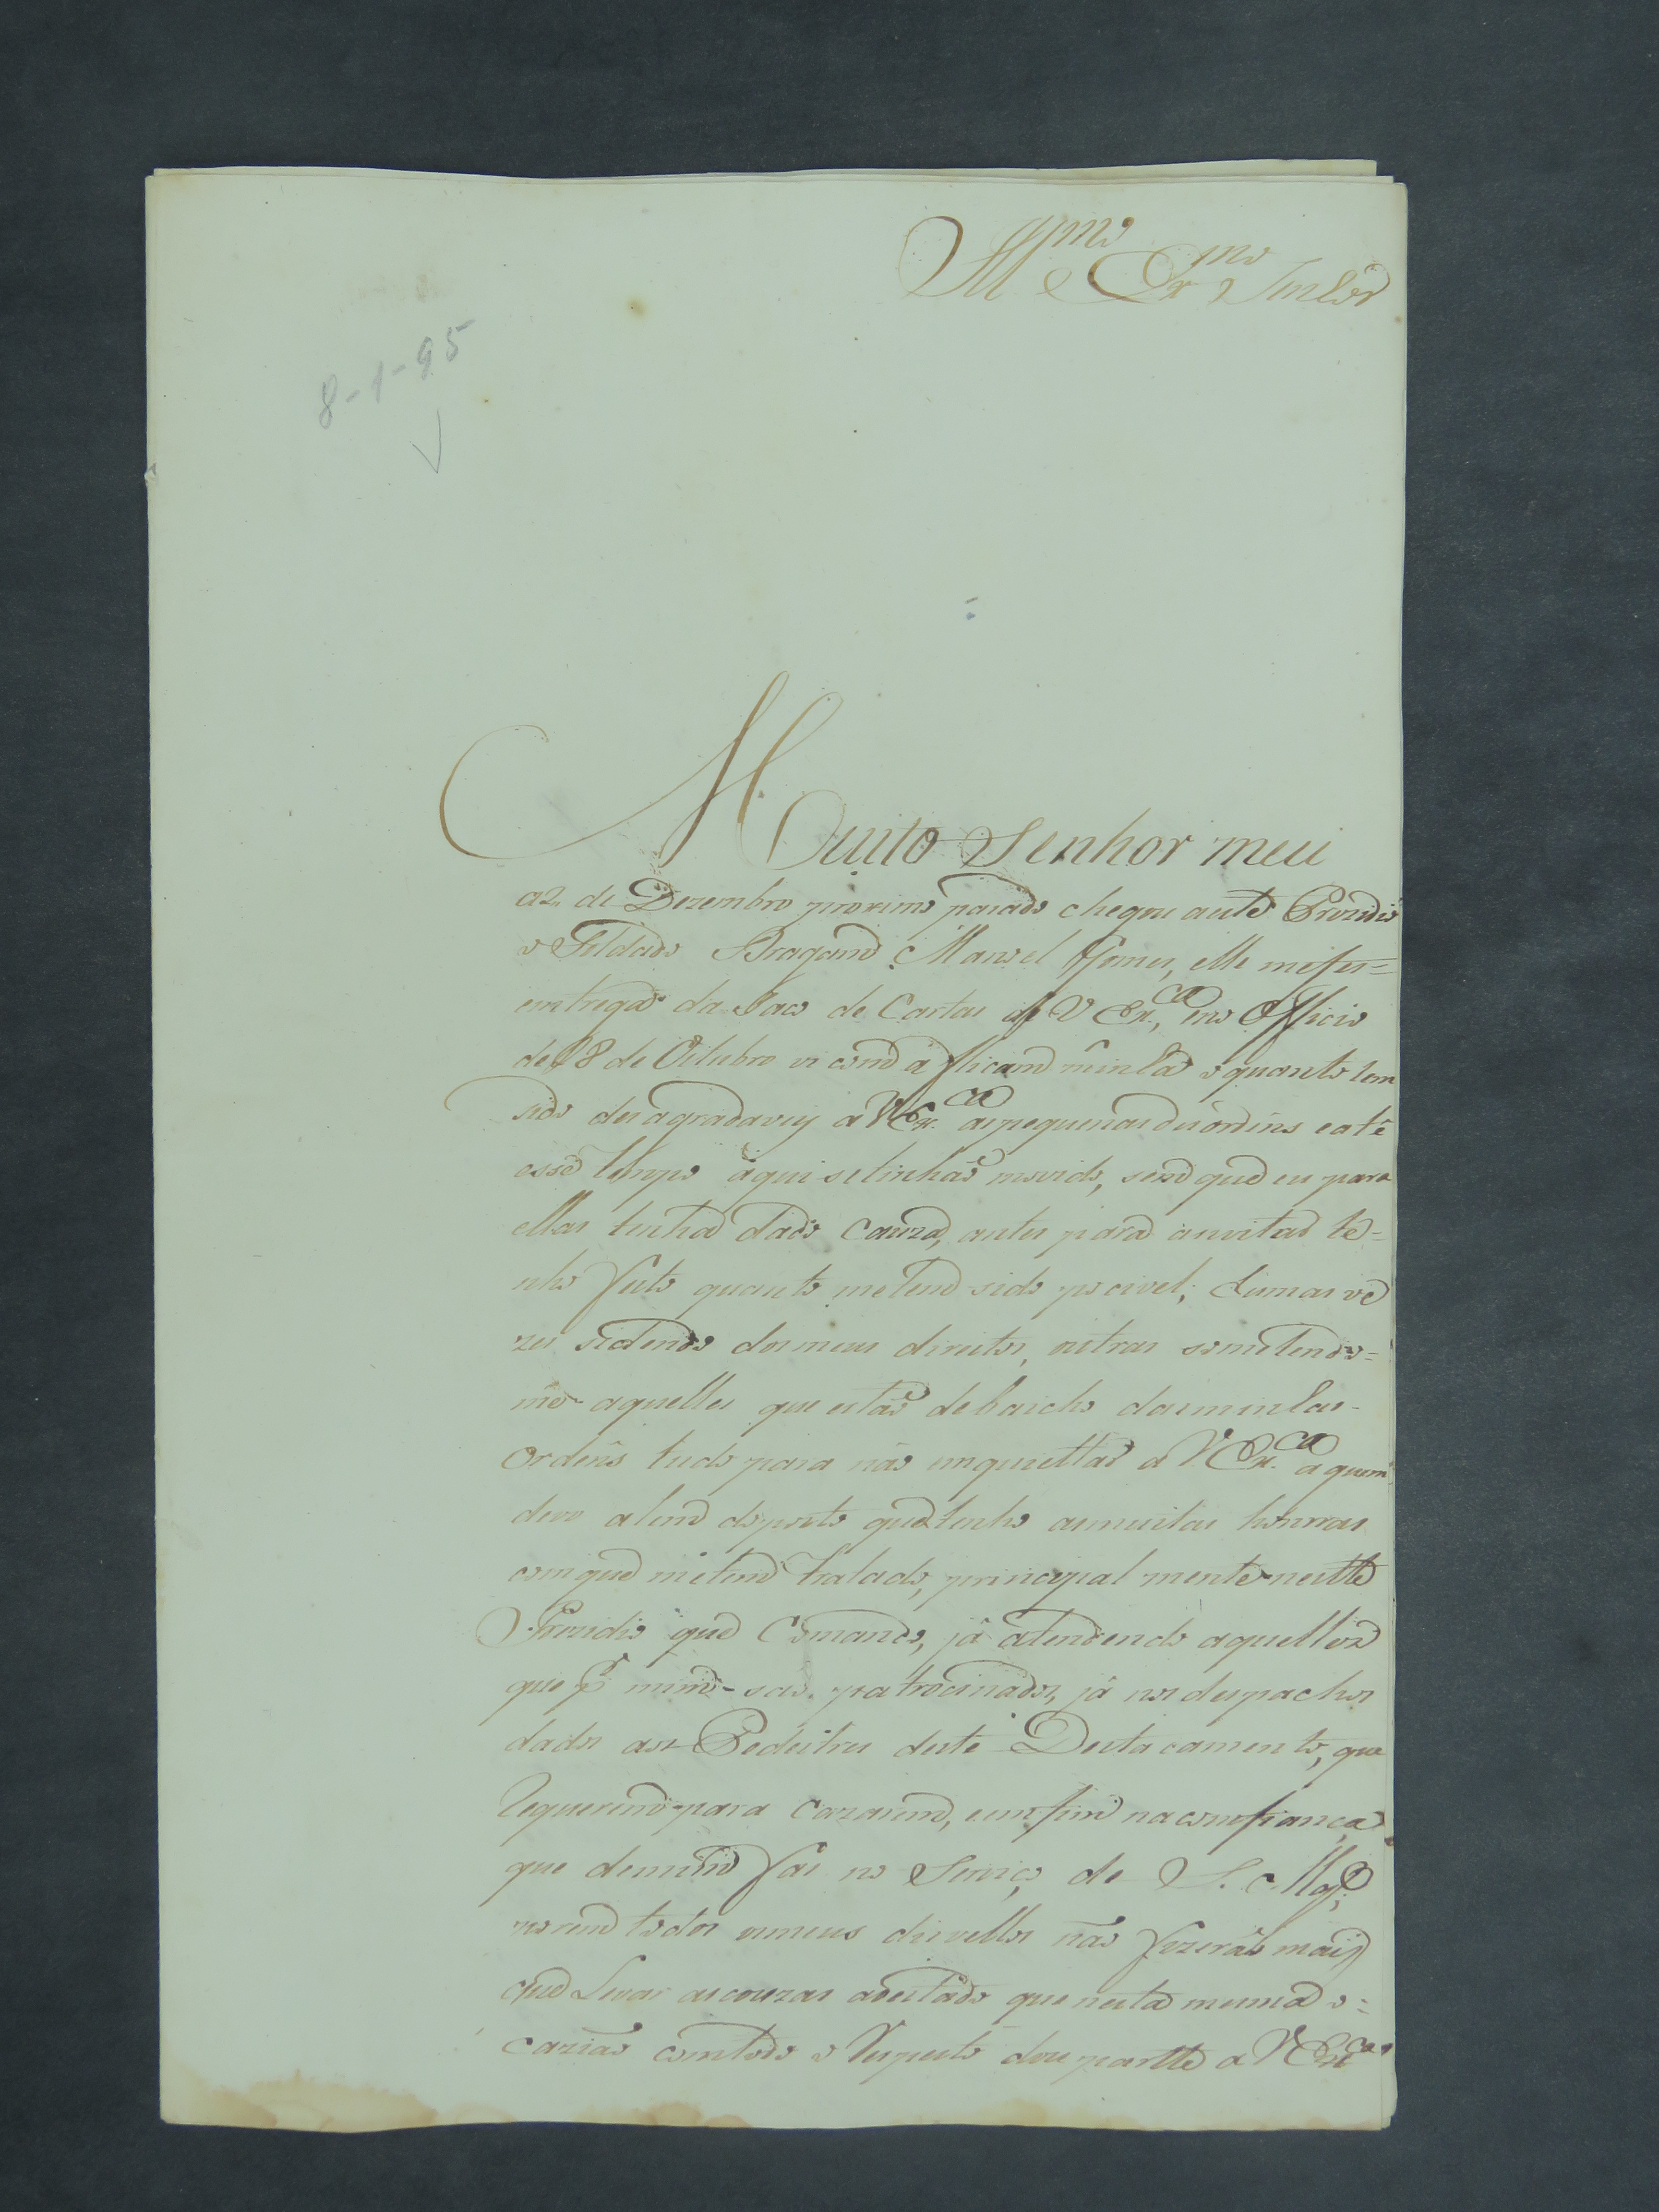 Ill.mo e Ex.mo Senhor
8-1-95
Muito Senhor meu
a 2 de Dezembro proximo pasado chegou a este Prezidio
o Soldado Dragam Manoel Gomes, elle me fes=
entrega da Saco de Cartas de V Ex.ca, no Officio
de 18 de Oitubro vi com aflicam minha o quanto tem
sido desagradavey a V Ex.ca as pequenas desordens e até
esse tempo aqui se tinhaõ movido, sem que eu para
ellas tenha dado cauza, antes para as evitar te=
nho feito quanto me tem sido pocivel; humas ve
zes sedendo dos meus direitos, outras sometendo=
me aquelles que estaõ debaicho das minhas
Ordens tudo para naõ emquiettar a V. Ex.ca a quem
devo alem do posto que tenho as muitas honrras
com que me tem tratado, principal mente neste
Prezidio que Comando, já atendendo aquelles
que p.r mim saõ patrocinados, já nos despachos
dados aos Pedestres deste Destacamento, que
Requerem para cazarem, emfim na comfiança
que de mim fas no Serviço de S. Mag.e;
porem todos os meus disvellos naõ fizeraõ mais
que Levar as couzas a estado que nesta mesma o=
caziaõ com todo o Respeito dou parte a V Ex.ca